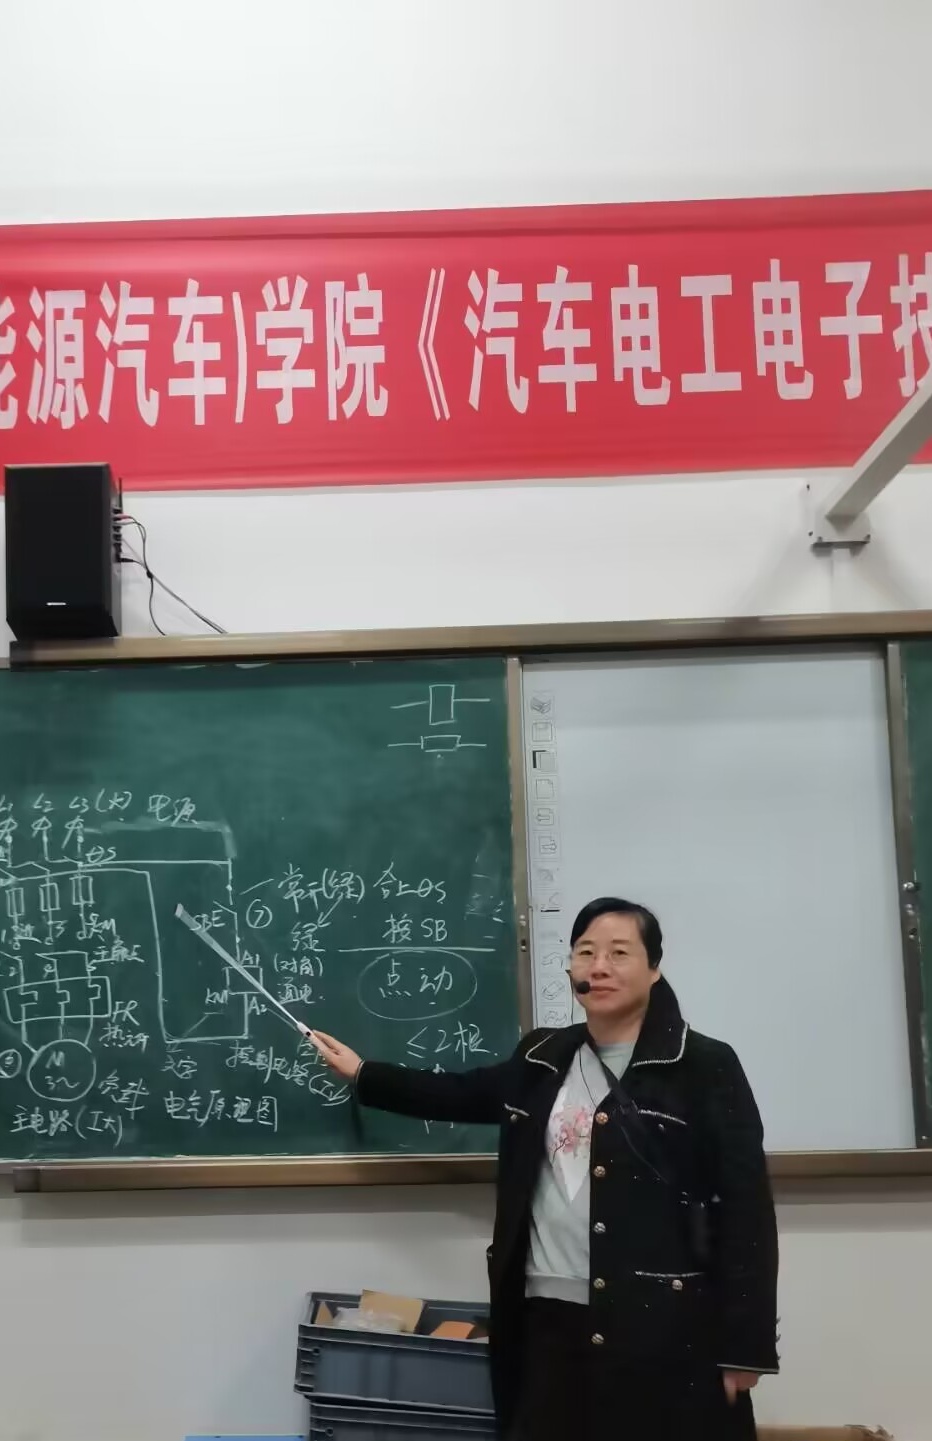 能源汽车)学院《汽车电工电子技
L1 L2 L3 (大) 电源
QS
常开(绿)
合上QS
SBE
⑦
绿
按SB
KM
主触点
A1
(对角)
通电
点动
KM
A2
FR
热元件
≤2根
M
3~
负载
文字
控制电路
主电路(I大)
电气原理图